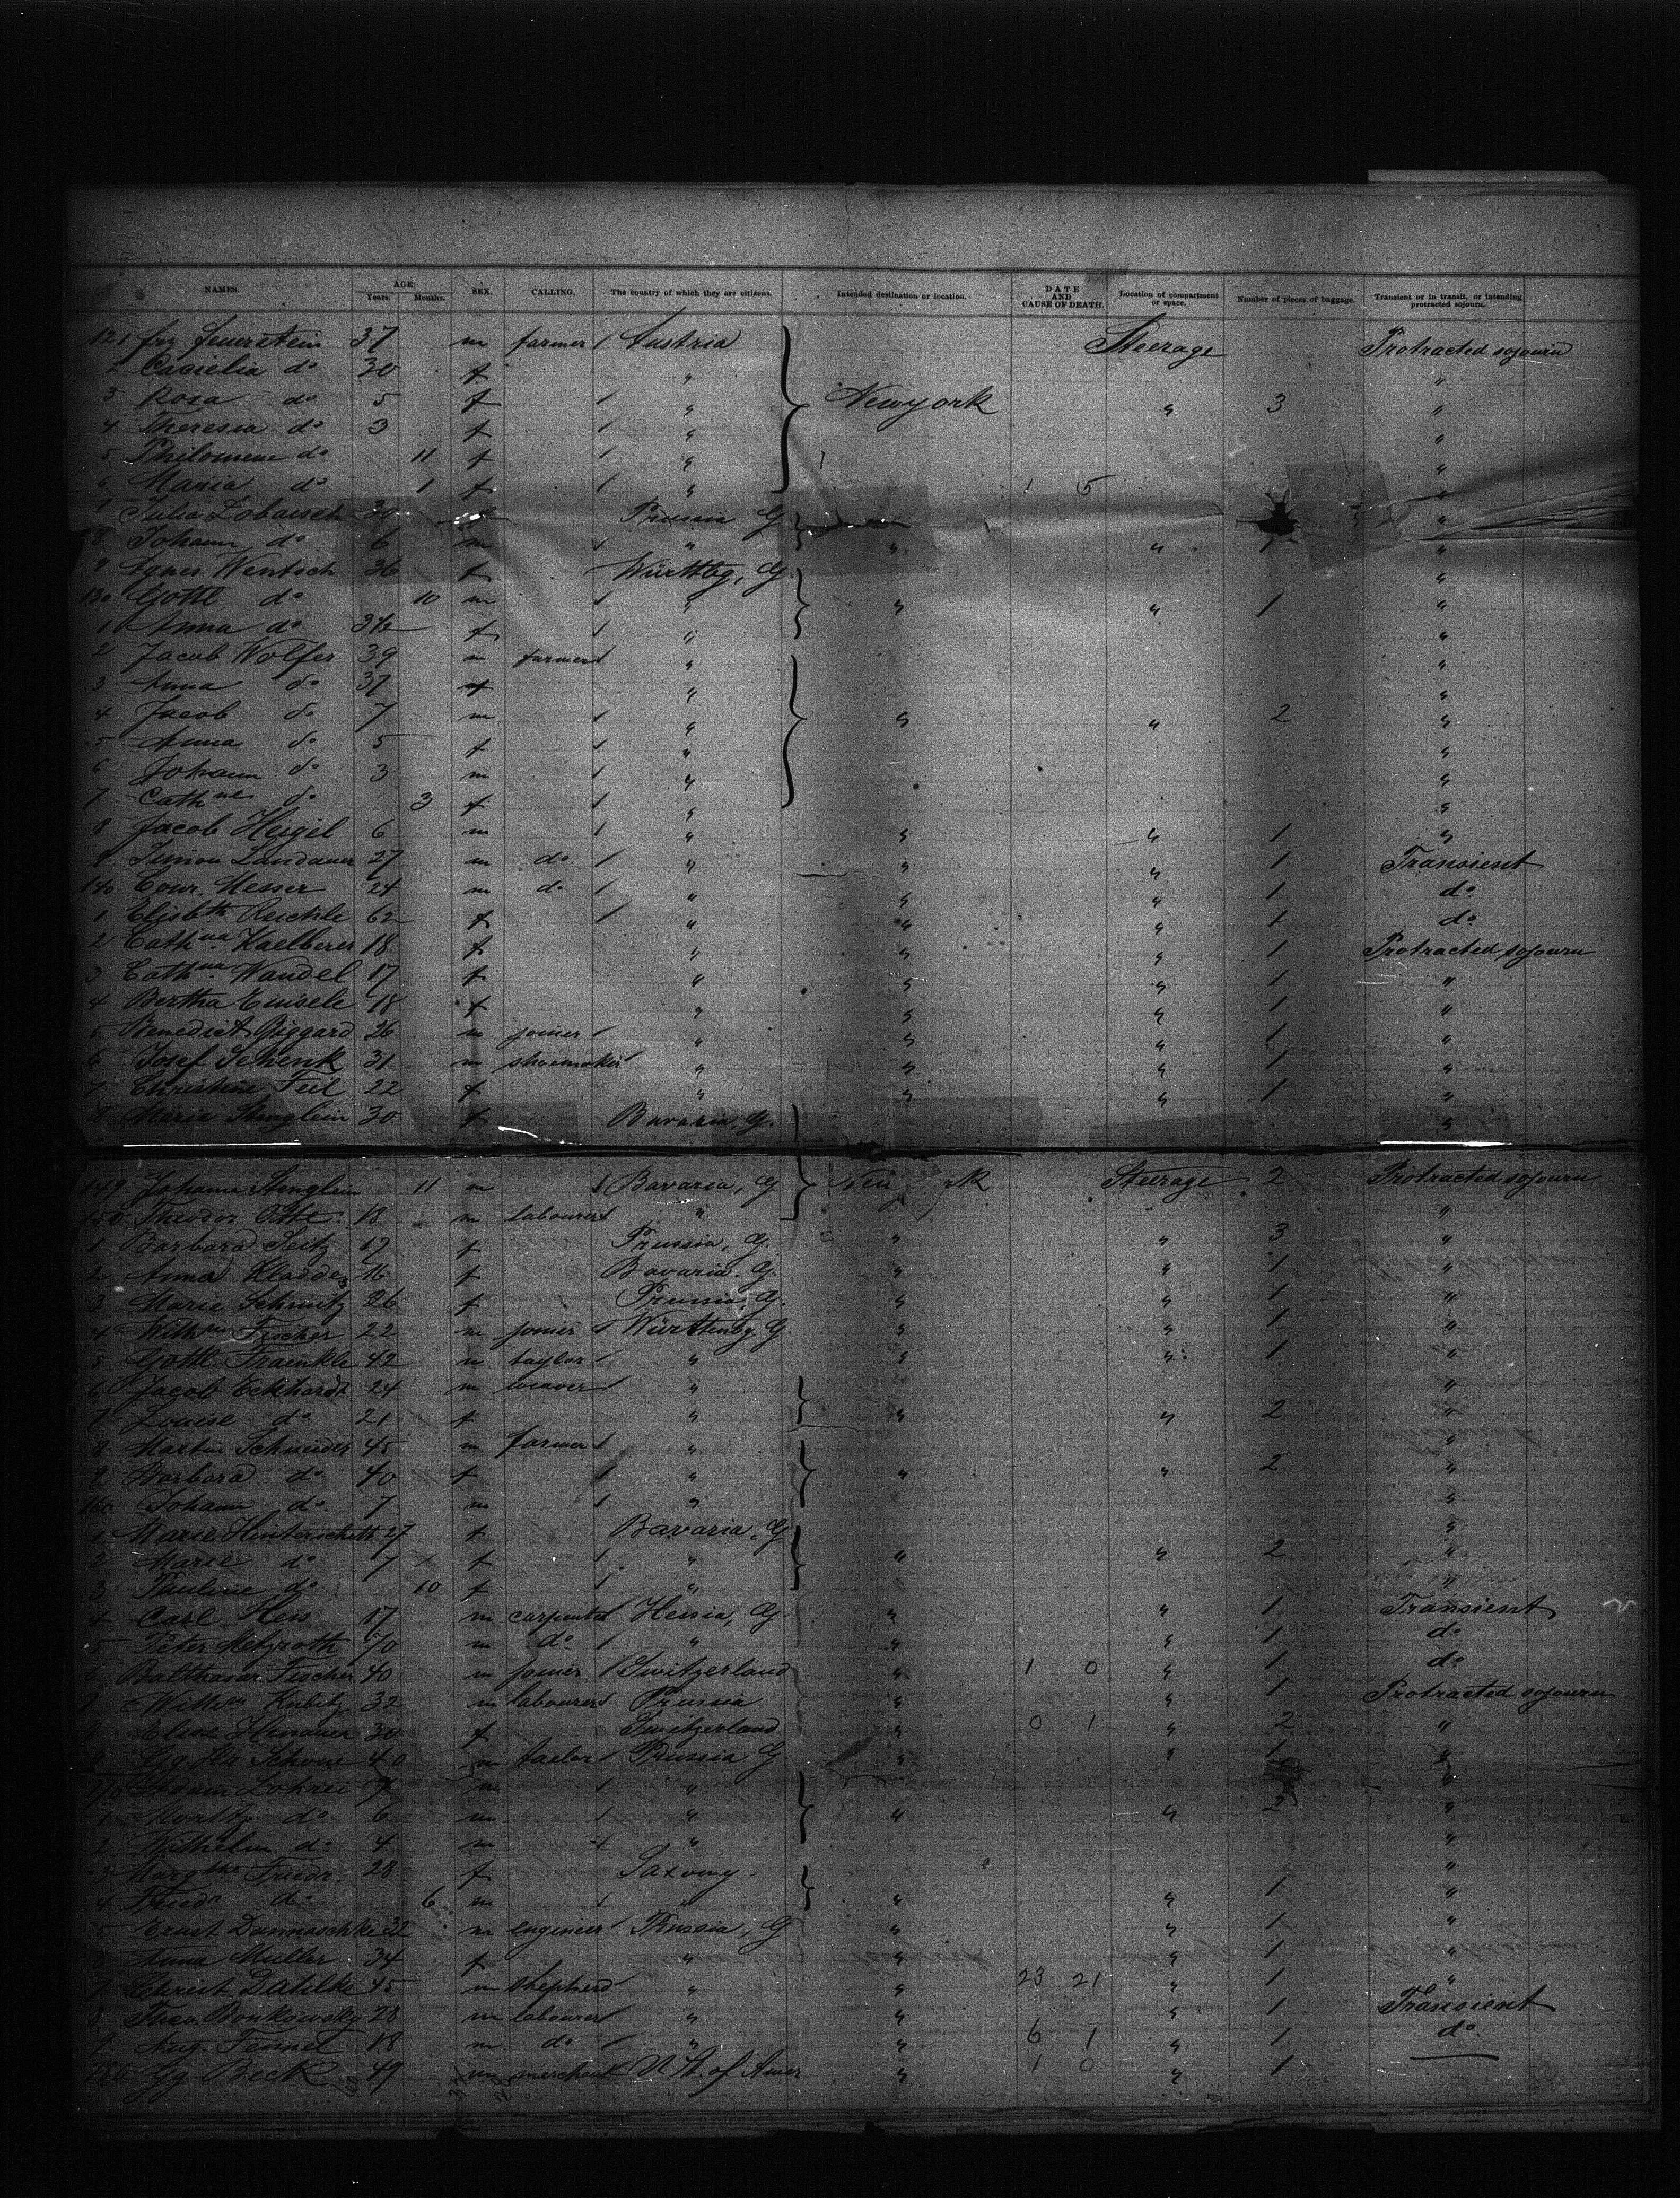 NAMES. AGE. Years. Months. SEX. CALLING. The country of which they are citizens. Intended destination or location. DATE AND CAUSE OF DEATH. Location of compartment or space. Number of pieces of baggage. Transient or in transit, or intending protracted sojourn.
121 Frz Feuerstein 37 m farmer / Austria Steerage Protracted sojourn
2 Cacielia do 30 f " "
3 Rosa do 5 f / " Newyork " 3 "
4 Theresia do 3 f / " "
5 Philomene do 11 f / " "
6 Maria do 1 f / " 1 5 "
7 Julia Zobaisch 30 Prussia G "
8 Johann do 6 m / " " " 1 "
9 Agnes Wentsch 36 f Württbg, G "
130 Gottl do 10 m / " " " 1 "
1 Anna do 3½ f / " "
2 Jacob Wolfer 39 m farmer / " "
3 Anna do 37 f " "
4 Jacob do 7 m / " " " 2 "
5 Anna do 5 f / " "
6 Johann do 3 m / " "
7 Cathne do 3 f / " "
8 Jacob Heigel 6 m / " " " 1 "
9 Simon Landauer 27 m do / " " " 1 Transient
140 Conr. Messer 24 m do / " " " 1 do
1 Elisbth Reichle 62 f / " " " 1 do
2 Cathna Kaelberer 18 f " " " 1 Protracted sojourn
3 Cathna Wandel 17 f " " " 1 "
4 Bertha Eisele 18 f " " " 1 "
5 Benedict Giggard 26 m joiner / " " " 1 "
6 Josef Schenk 31 m shoemaker / " " " 1 "
7 Christine Feil 22 f " " " 1 "
8 Maria Stenglein 30 f Bavaria, G. "
149 Johann Stenglein 11 m / Bavaria, G Steerage 2 Protracted sojourn
150 Theodor Otte 18 m labourer / " "
1 Barbara Seitz 17 f Prussia, G. " " 3 "
2 Anna 16 f Bavaria. G. " " 1 "
3 Marie Schmitz 26 f Prussia, G. " " 1 "
4 Wilhm Fischer 22 m joiner / Württenbg G. " " 1 "
5 Gottl. Fraenkle 42 m taylor / " " " 1 "
6 Jacob Eckhardt 24 m weaver / " "
7 Louise do 21 f " " " 2 "
8 Martin Schneider 45 m farmer / " "
9 Barbara do 40 f / " " " 2 "
160 Johann do 7 m / " "
1 Marie 27 f Bavaria, G "
2 Marie do 7 f / " " " 2 "
3 Pauline do 10 f / " "
4 Carl Hess 17 m carpenter / Hessia, G. " " 1 Transient
5 Peter Metzroth 70 m do / " " " 1 do
6 Balthasar Fischer 40 m joiner / Switzerland " 1 0 " 1 do
7 Wilhm Kubitz 32 m labourer / Prussia " " 1 Protracted sojourn
8 Elise 30 f Switzerland " 0 1 " 2 "
9 Gg. Hr Schone 40 m taelor / Prussia G " " 1 "
170 Adam Lohrei m / " "
1 Moritz do 6 m / " " " 2 "
2 Wilhelm do 4 m / " "
3 Margthe Friedr. 28 f Saxony. "
4 Friedr do 6 m / " " " 1 "
5 Ernst Dannaschke 32 m engineer / Prussia, G " " 1 "
6 Anna Muller 34 f " " " 1 "
7 Christ Dahlke 45 m shepherd / " " 23 21 " 1 "
8 Theo. Bonkowsky 28 m labourer / " " " 1 Transient
9 Aug. Fennel 18 m do / " " 6 1 " 1 do.
180 Gg. Beck 49 m merchant U St. of Amer " 1 0 " 1 —